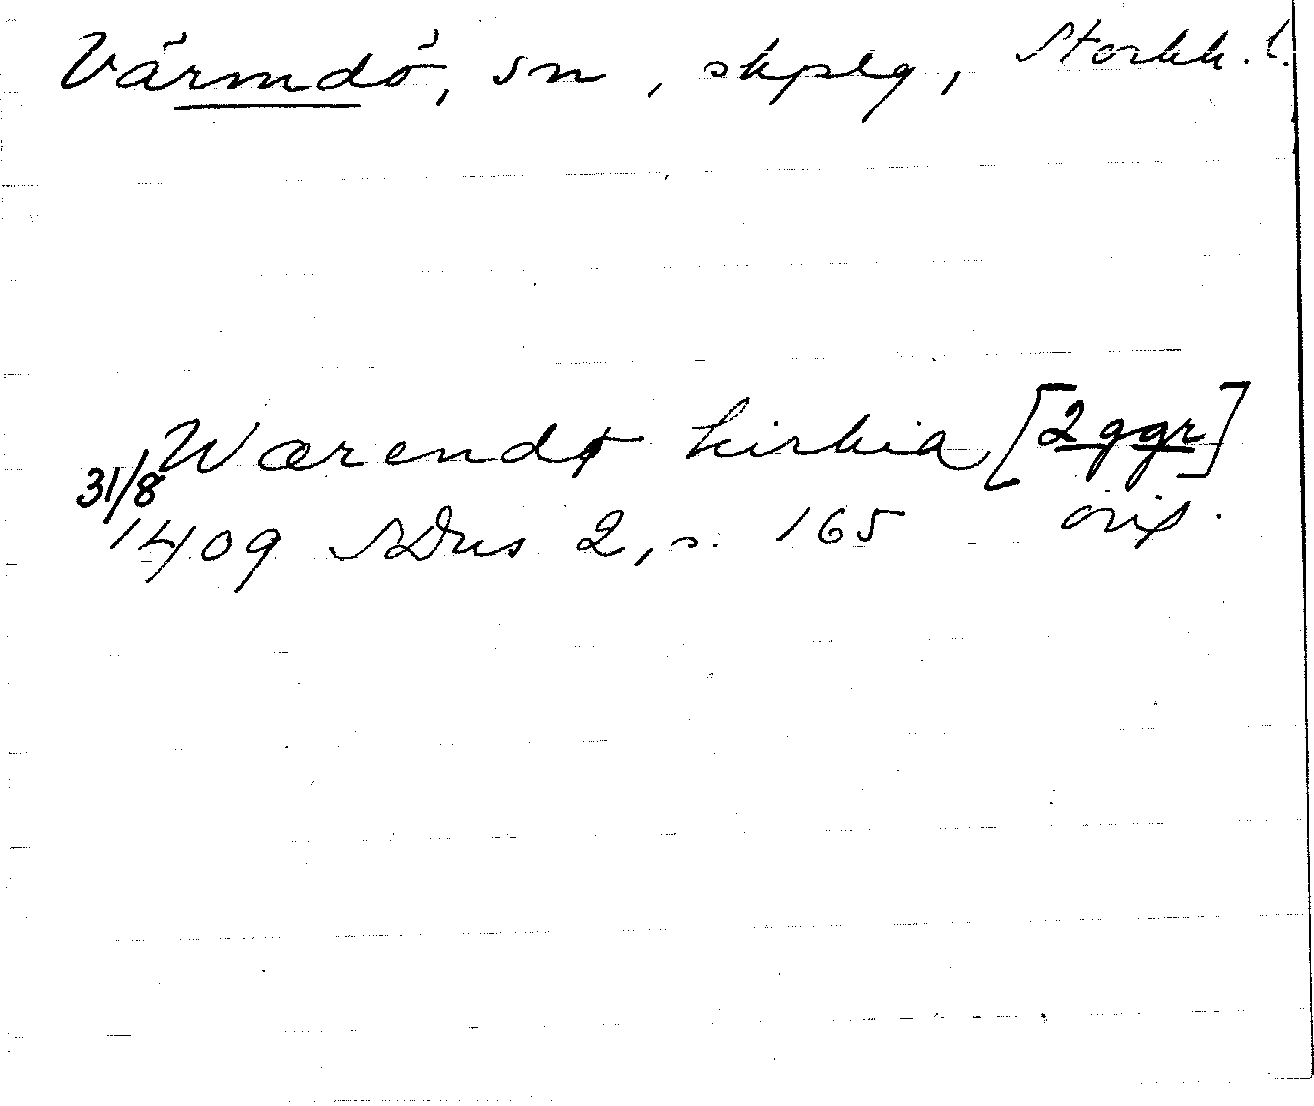 Värmdö, sn, skplg, Stockh. l.
Wærendø kirkia [2 ggr]
31/8 1409 SDns 2, s. 165 orig.